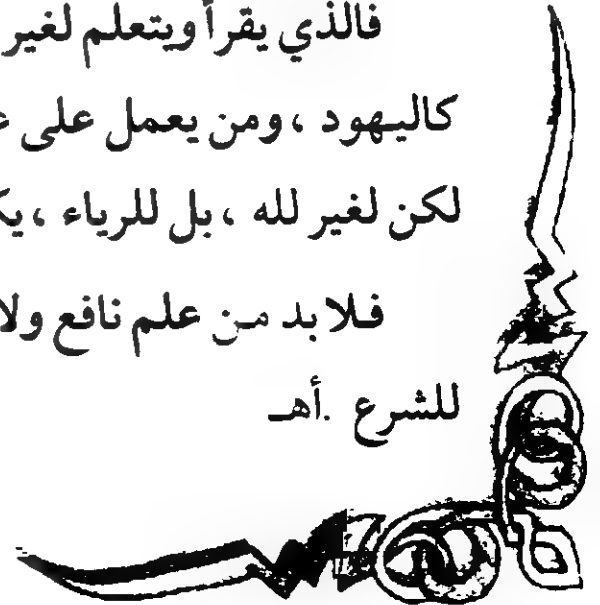 فالذي يقرأ ويتعلم لغير
كاليهود ، ومن يعمل على
لكن لغير لله ، بل للرياء ،
فلا بد من علم نافع ولا
للشرع .أهـ